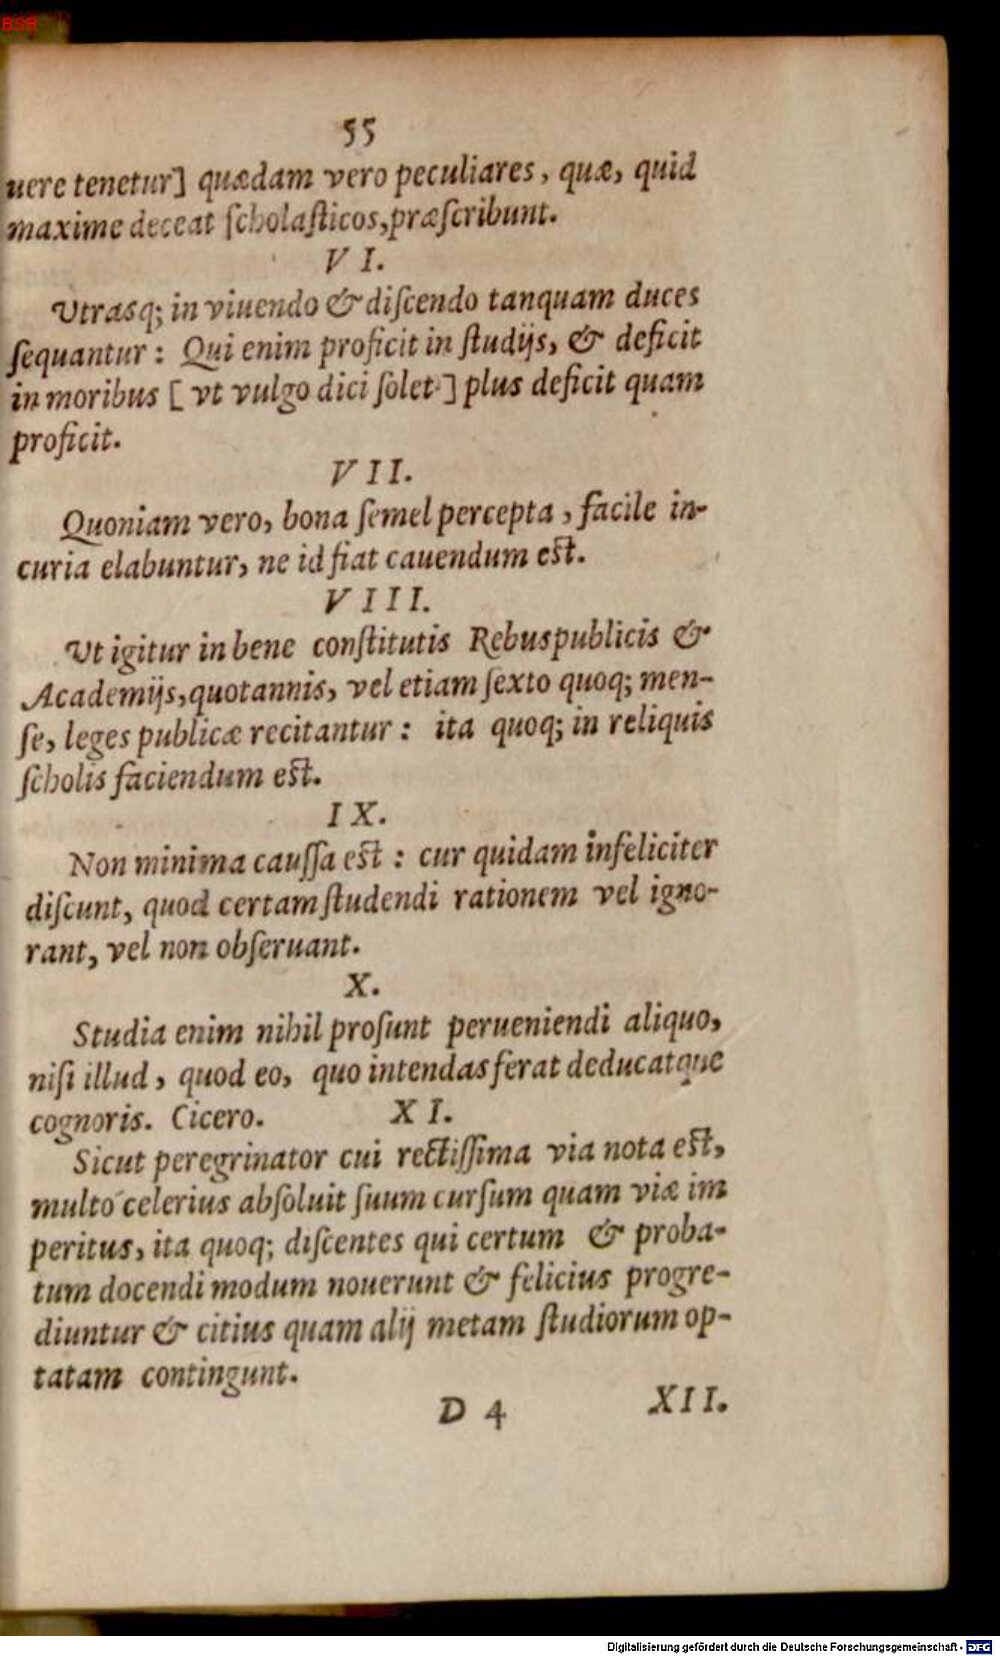 BSB
55
uere tenetur] quædam vero peculiares, quæ, quid
maxime deceat ſcholaſticos,præſcribunt.
VI.
Vtrasq; in viuendo & diſcendo tanquam duces
ſequantur: Qui enim proficit in ſtudijs, & deficit
in moribus [vt vulgo dici ſolet] plus deficit quam
proficit.
VII.
Quoniam vero, bona ſemel percepta, facile in-
curia elabuntur, ne id fiat cauendum eſt.
VIII.
Vt igitur in bene conſtitutis Rebuspublicis &
Academijs, quotannis, vel etiam ſexto quoq; men-
ſe, leges publicæ recitantur: ita quoq; in reliquis
ſcholis faciendum eſt.
IX.
Non minima cauſſa eſt: cur quidam infeliciter
diſcunt, quod certam ſtudendi rationem vel igno-
rant, vel non obſeruant.
X.
Studia enim nihil proſunt perueniendi aliquo,
niſi illud, quod eo, quo intendas ferat deducatque
cognoris. Cicero. XI.
Sicut peregrinator cui rectiſſima via nota eſt,
multò celerius abſoluit ſuum curſum quam viæ im
peritus, ita quoq; diſcentes qui certum & proba-
tum docendi modum nouerunt & felicius progre-
diuntur & citius quam alij metam ſtudiorum op-
tatam contingunt.
D 4 XII.
Digitalisierung gefördert durch die Deutsche Forschungsgemeinschaft - DFG